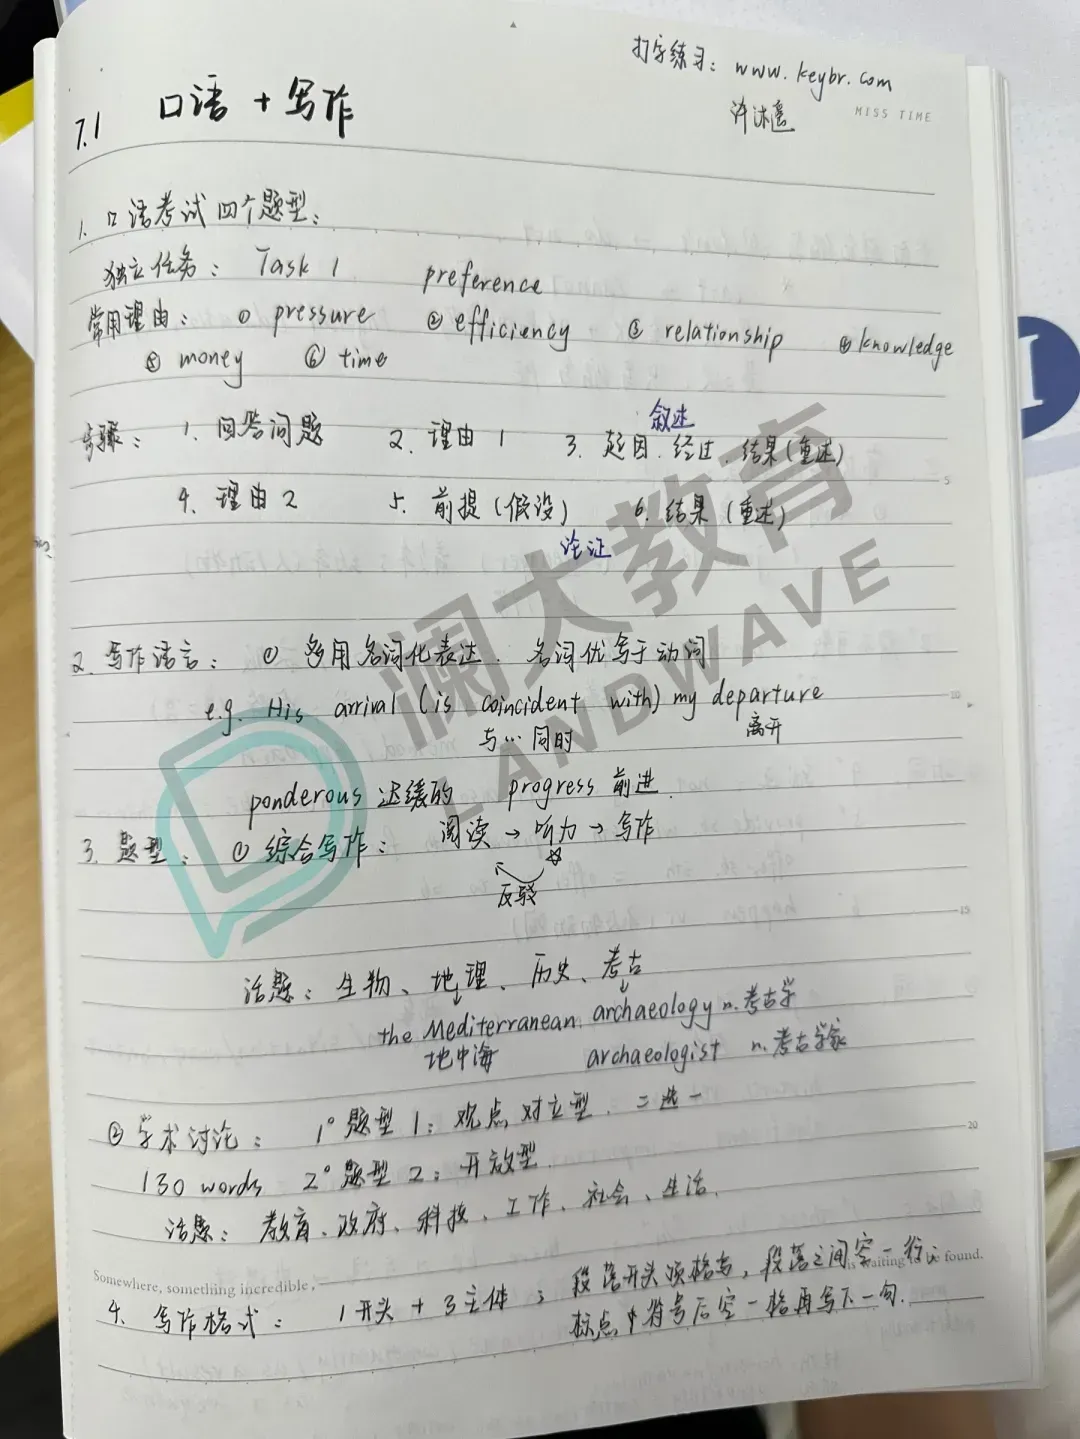 打字练习：www.keybr.com
7.1 口语 + 写作
许沐遥
MISS TIME
1. 口语考试四个题型：
独立任务： Task 1 preference
常用理由： ① pressure ② efficiency ③ relationship ④ knowledge
⑤ money ⑥ time
叙述
步骤： 1. 回答问题 2. 理由 1 3. 起因、经过、结果(重述)
4. 理由 2 5. 前提 (假设) 6. 结果 (重述)
论证
2. 写作语言： ① 多用名词化表达、名词优写于动词
e.g. His arrival (is coincident with) my departure
与…同时 离开
ponderous 迟缓的 progress 前进
3. 题型： ① 综合写作： 阅读 → 听力 → 写作
反驳
话题： 生物、地理、历史、考古
the Mediterranean. archaeology n. 考古学
地中海 archaeologist n. 考古学家
② 学术讨论： 1° 题型 1：观点对立型、二选一
130 words 2° 题型 2：开放型.
话题： 教育、政府、科技、工作、社会、生活.
Somewhere, something incredible, is waiting to be found.
4. 写作格式： 1 开头 + 3 主体； 段落开头顶格写，段落之间空一行；
标点符号后空一格再写下一句.
澜大教育
LANDWAVE
5
10
15
20